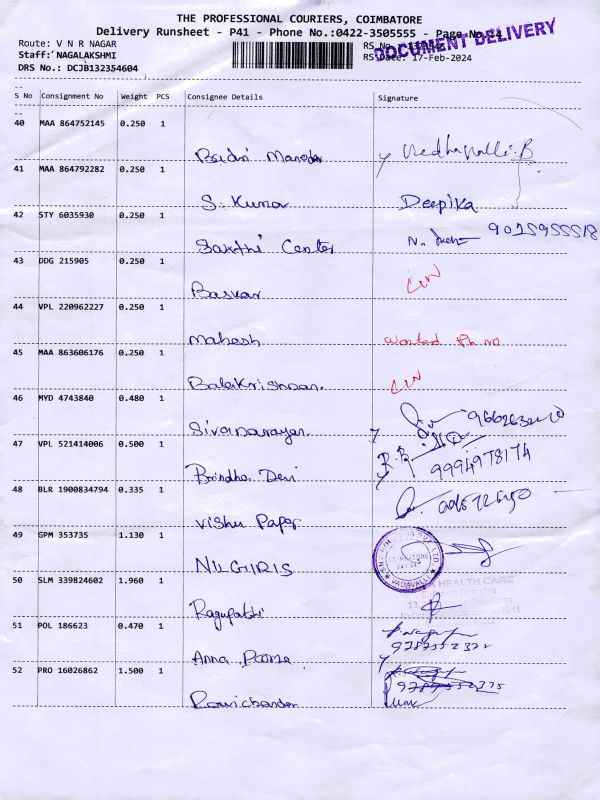 THE PROFESSIONAL COURIERS, COIMBATORE
Delivery Runsheet - P41 - Phone No.:0422-3505555 - Page No.:4
DOCUMENT DELIVERY
Route: V N R NAGAR
Staff: NAGALAKSHMI
RS Date: 17-Feb-2024
DRS No.: DCJB132354604
S No Consignment No Weight PCS Consignee Details Signature
40 MAA 864752145 0.250 1
Badri Manoder Vedhavalli.B
41 MAA 864792282 0.250 1
S. Kumar Deepika
42 STY 6035930 0.250 1
Sakthi Center N. 9025955518
43 DDG 215905 0.250 1
Baskar
44 VPL 220962227 0.250 1
Mahesh Wanted Ph no
45 MAA 863606176 0.250 1
Balakrishnan.
46 MYD 4743840 0.480 1
Sivanarayan.
47 VPL 521414006 0.500 1
Brindha Devi 9994978174
48 BLR 1900834794 0.335 1
Vishu Paper
49 GPM 353735 1.130 1
NILGIRIS VADAVALLI
50 SLM 339824602 1.960 1
HEALTH CARE
Ragupathi
51 POL 186623 0.470 1
Anna Poorna
52 PRO 16026862 1.500 1
Ravichander